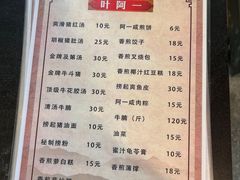 叶阿一
爽滑猪红汤 10元
胡椒猪肚汤 25元
金牌及第汤 30元
金牌牛斗猪 30元
顶级牛花胶汤 30元
清汤牛腩 30元
捞起猪油面 10元
秘制捞粉 10元
香煎萝白糕 15元
阿一咸煎饼 6元
香煎饺子 18元
香煎叉烧包 15元
香煎椰汁红豆糕 18元
捞起爽鱼皮 30元
阿一咸肉粽 15元
牛腩（斤） 120元
油菜 15元
蜜汁龟苓膏 10元
香煎薄撑 18元